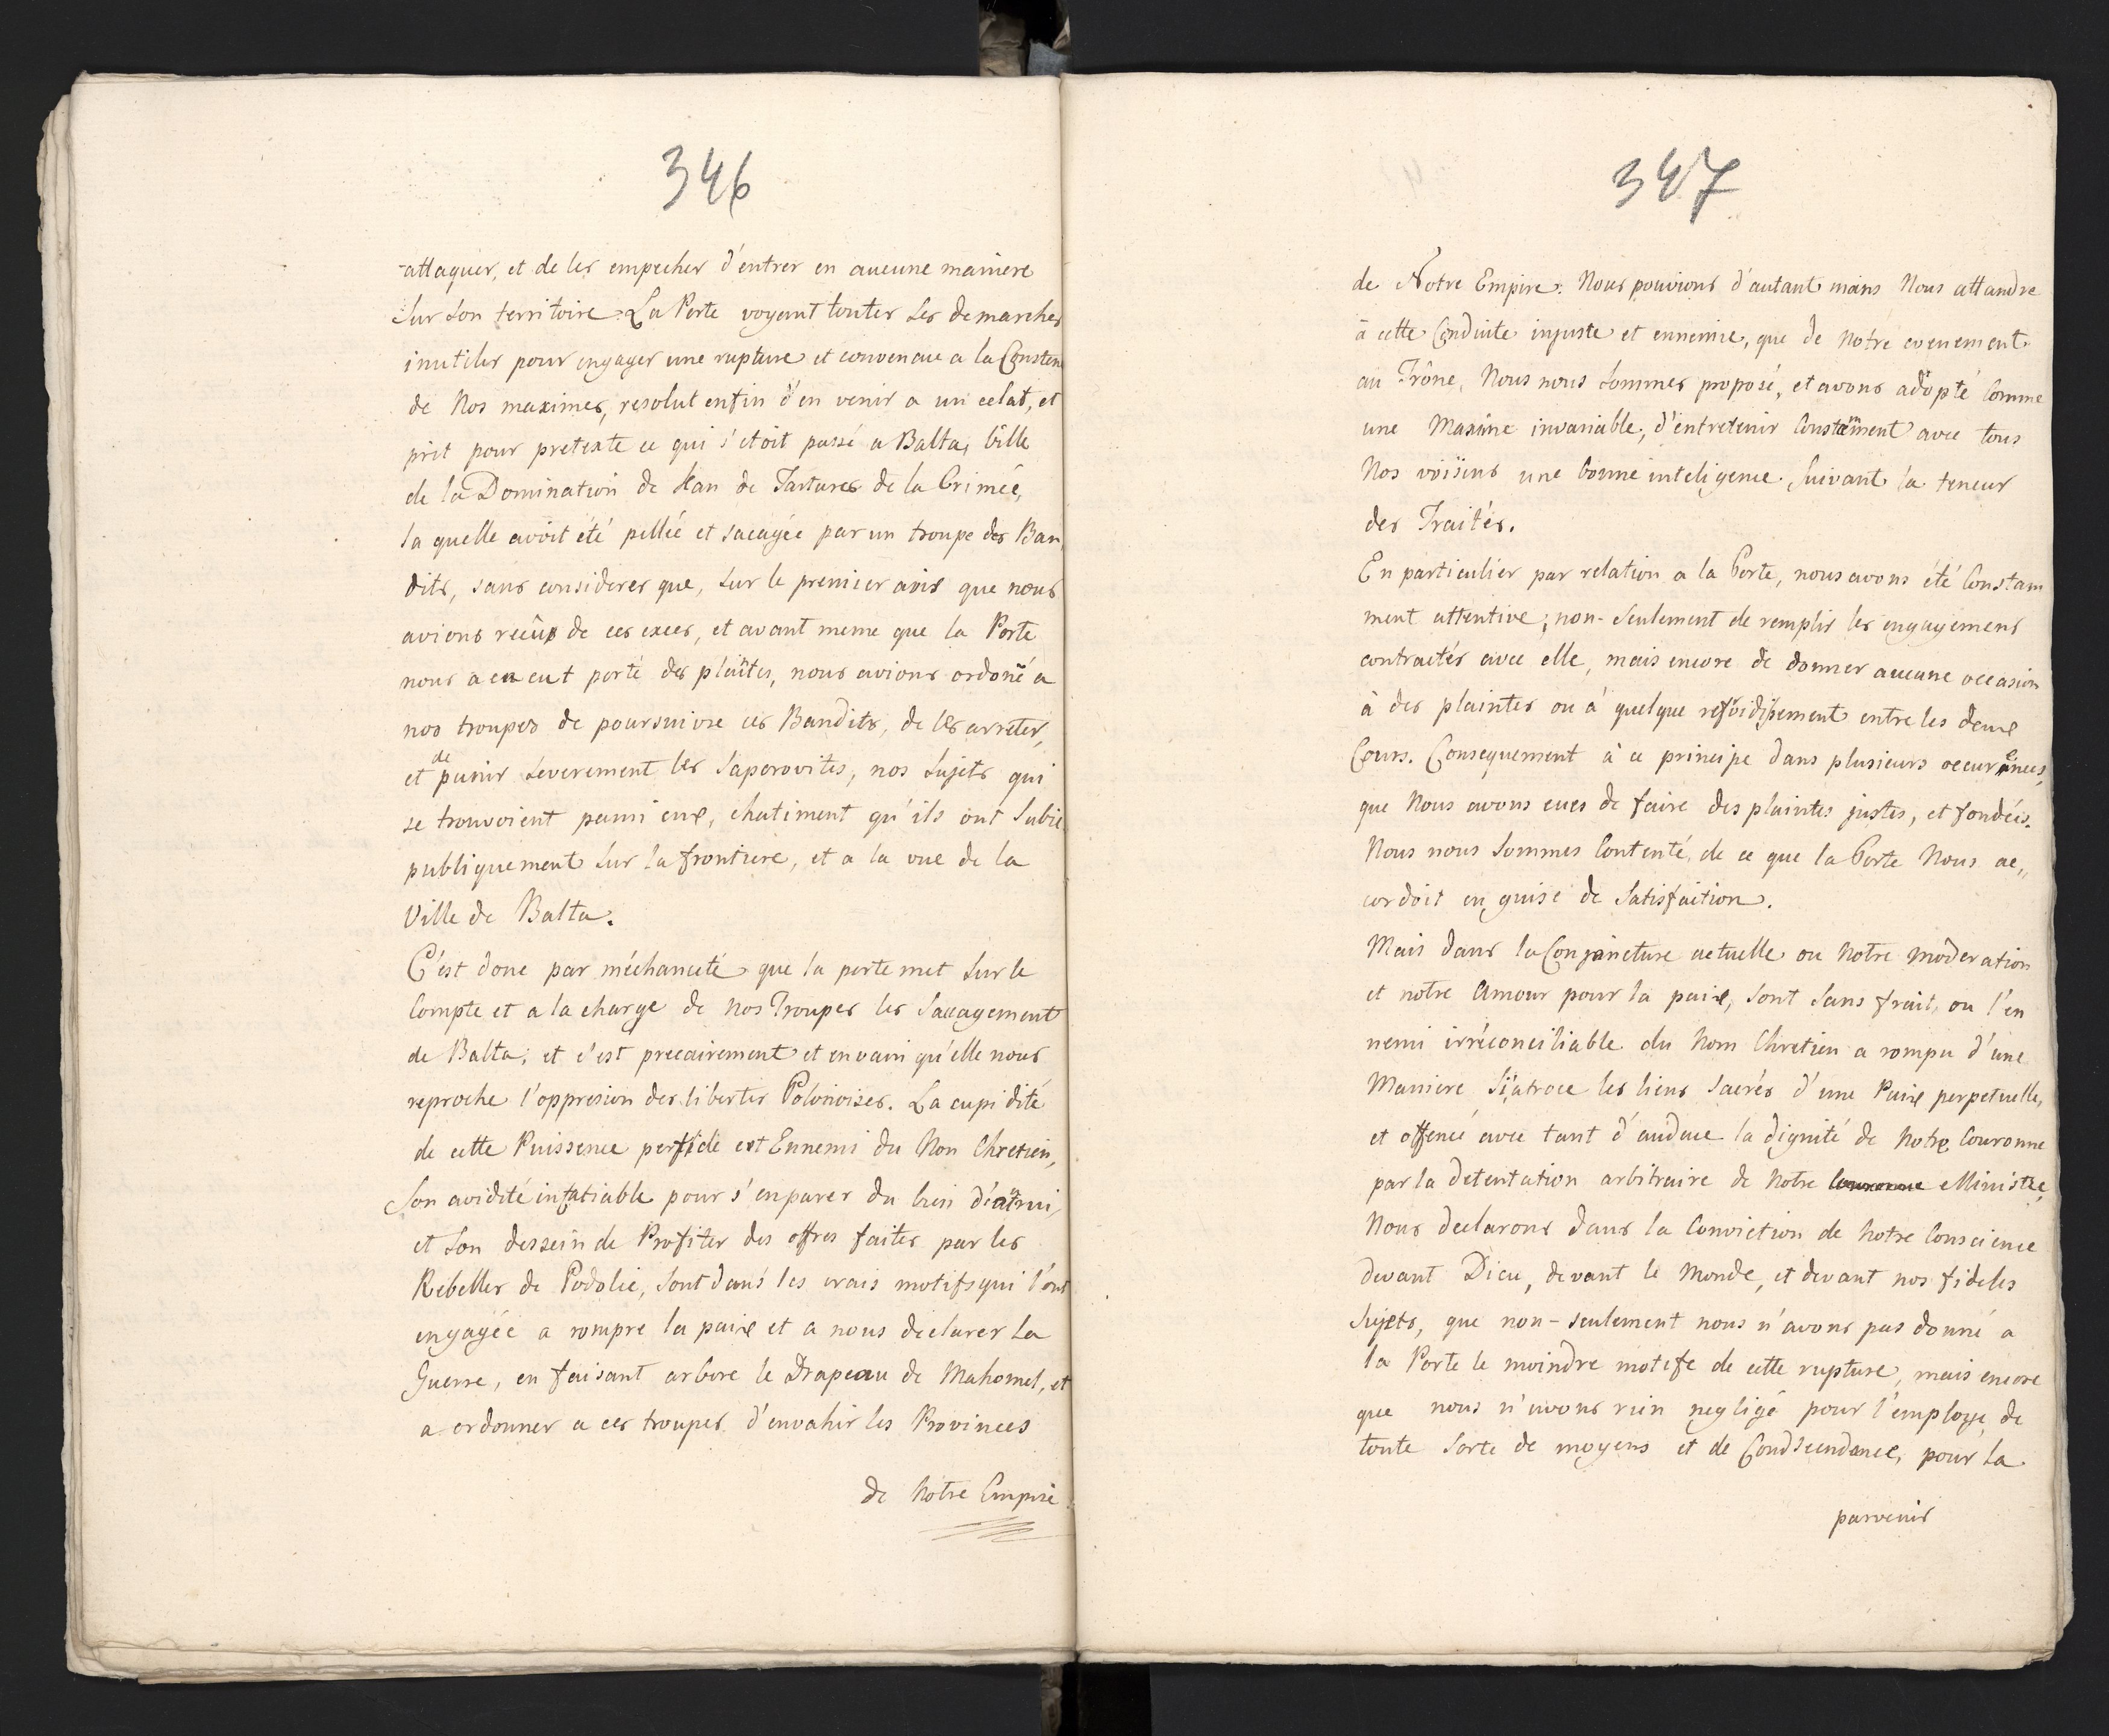 346
attaquer, et de les empecher d'entrer en aucune maniere
Sur Son territoire. La Porte voyant toutes Ses demarches
inutiles pour engager une rupture et convencue a la Constan
de Nos maximes, resolut enfin d'en venir a un eclat, et
prit pour pretexte ce qui s'etoit passé a Balta, Ville
de la Domination de Han de Tartares de la Crimée,
la quelle avoit été pellée et sacagée par un troupe des Ban,
dits, sans considerer que, Sur le premier avis que nous
avions reçûs de ces exces, et avant meme que la Porte
nous a en eut porté des plaîtes, nous avions ordoñé a
nos troupes de poursuivre ces Bandits, de les arreter,
et de punir Severement les Saporovites, nos Sujets qui
se trouvoient pami eux, chatiment qu'ils ont Subie
publiquement Sur la frontiere, et a la vue de la
Ville de Balta.
C'est donc par méchanceté que la porte met Sur le
Compte et a la charge de nos Troupes les Saccagement
de Balta; et c'est precairement et en vain qu'elle nous
reproche l'oppresion des libertés Polonoises. La cupidité
de cette Puissence perfide et Ennemi du Non Chretien,
Son avidité insatiable pour s'enparer du bien d'autrui,
et Son dessein de Profiter des offres faites par les
Rebelles de Podolie, Sont dans les vrais motifs qui l'ont
engagée a rompre la paix et a nous declarer la
Guerre, en faisant arbore le Drapeau de Mahomet, et
a ordonner a ces troupes d'envahir les Provinces
de Notre Empire
347
de Notre Empire. Nous pouvions d'autant moins Nous attandre
à cette Conduite injuste et ennemie, que de Notre evenement
au Trône, Nous nous Sommes proposé, et avons adopté Comme
une Maxime invariable, d'entretenir Constam̃ent avec tous
Nos voisins une bonne inteligence Suivant la teneur
des Traités.
En particulier par relation a la Porte, nous avons été Constam
ment attentive; non-Seulement de remplir les engagemens
contractés avec elle, mais encore de donner aucune occasion
à des plaintes ou à quelque refroidissement entre les deux
Cours. Consequement à ce principe dans plusieurs occurences,
que Nous avons eues de faire des plaintes justes, et fondées.
Nous nous Sommes Contenté, de ce que la Porte Nous ac,,
cordoit en guise de Satisfaction.
Mais dans la Conjoncture actuelle ou Notre moderation
et notre Amour pour la paix, Sont Sans frait, ou l'en
nemi irréconciliable du Nom Chretien a rompu d'une
Maniere Si atroce les liens Sacrés d'une Paix perpetuelle,
et offencé avec tant d'audace la dignité de Notre Couronne
par la detentation arbitraire de Notre Couronne Ministre,
Nous declarons dans la Conviction de Notre Conscience
devant Dieu, devant le Monde, et devant nos fideles
Sujets, que non-seulement nous n'avons pas donné a
la Porte le moindre motife de cette rupture, mais encore
que nous n'avons rien negligé pour l'employe de
toute Sorte de moyens et de Condscendance, pour la
parvenir